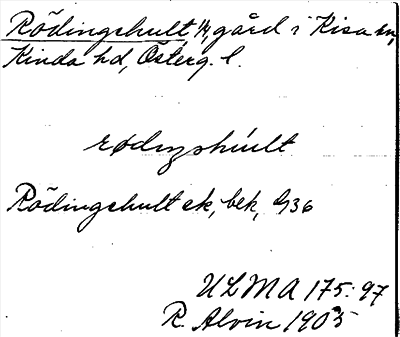 Rödingshult, 1/4, gård i Kisa sn,
Kinda hd, Österg. l.
rødiŋshùlt
Rödingshult ek, bek, G36
ULMA 175:97
R. Alvin 1905